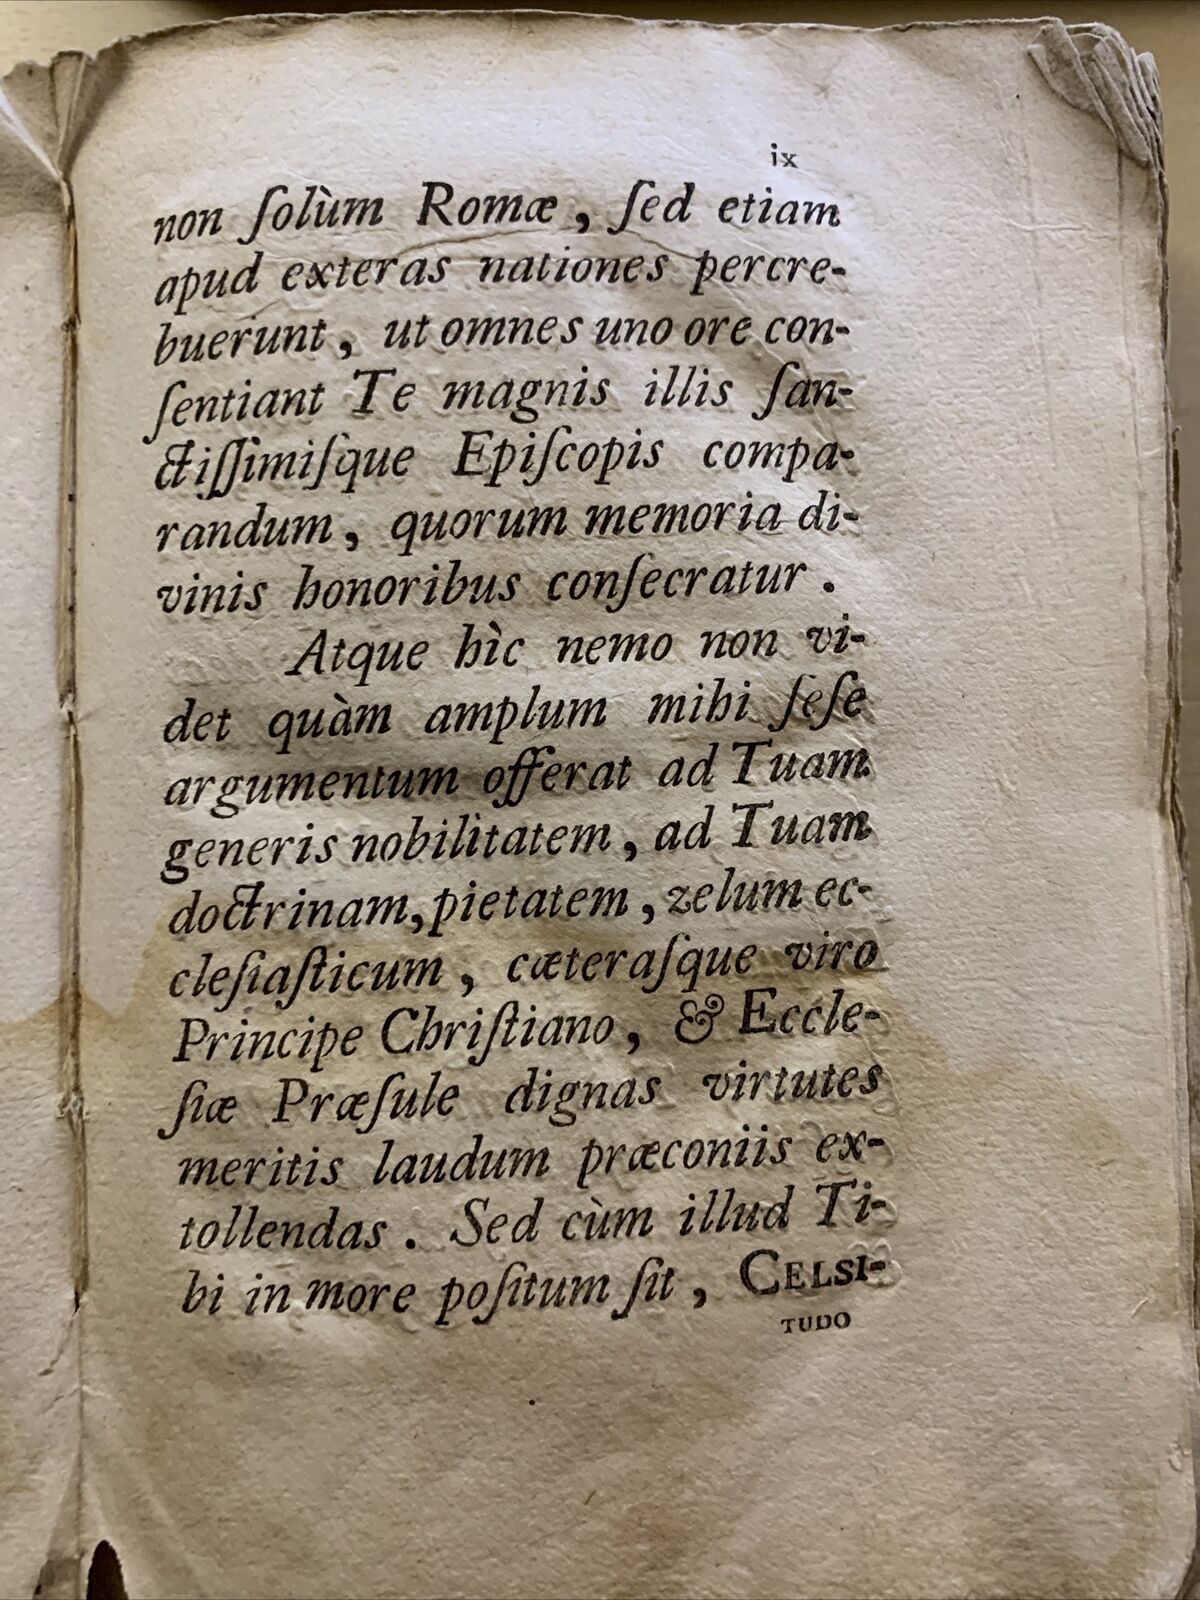 ix
non ſolùm Romæ, ſed etiam
apud exteras nationes percre-
buerunt, ut omnes uno ore con-
ſentiant Te magnis illis ſan-
ctiſſimiſque Epiſcopis compa-
randum, quorum memoria di-
vinis honoribus conſecratur.
Atque hìc nemo non vi-
det quàm amplum mihi ſeſe
argumentum offerat ad Tuam
generis nobilitatem, ad Tuam
doctrinam, pietatem, zelum ec-
cleſiaſticum, cæteraſque viro
Principe Chriſtiano, & Eccle-
ſiæ Præſule dignas virtutes
meritis laudum præconiis ex-
tollendas. Sed cùm illud Ti-
bi in more poſitum ſit, CELSI-
TUDO